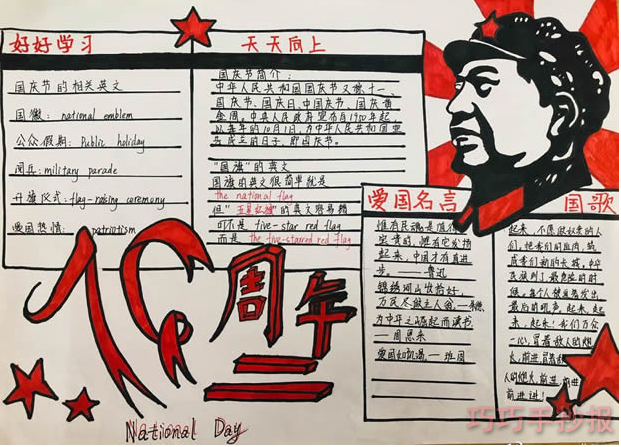 好好学习
天天向上
国庆节的相关英文
国徽: national emblem
公众假期: Public holiday
阅兵: military parade
升旗仪式: flag-raising ceremony
爱国热情: patriotism
国庆节简介:
中华人民共和国国庆节又称十一、
国庆节、国庆日、中国国庆节、国庆黄
金周。中央人民政府宣布自1950年起,
以每年的10月1日,为中华人民共和国宣
告成立的日子,即国庆节。
"国旗"的英文
国旗的英文很简单就是
the national flag
但"五星红旗"的英文容易错
可不是 five-star red flag
而是 the five-starred red flag
爱国名言
惟有民魂是值得
宝贵的,惟有它发扬
起来,中国才有真进
步。—鲁迅
为中华之崛起而读书
—周恩来
国歌
起来,不愿做奴隶的人
们,把我们的血肉,筑
成我们新的长城,中华
民族到了最危险的时
候,每个人被迫着发出
最后的吼声,起来,起
来,起来!我们万众
一心,冒着敌人的炮
火,前进,冒着敌
人的炮火,前进,前进
前进,进!
周年
National Day
巧巧手抄报